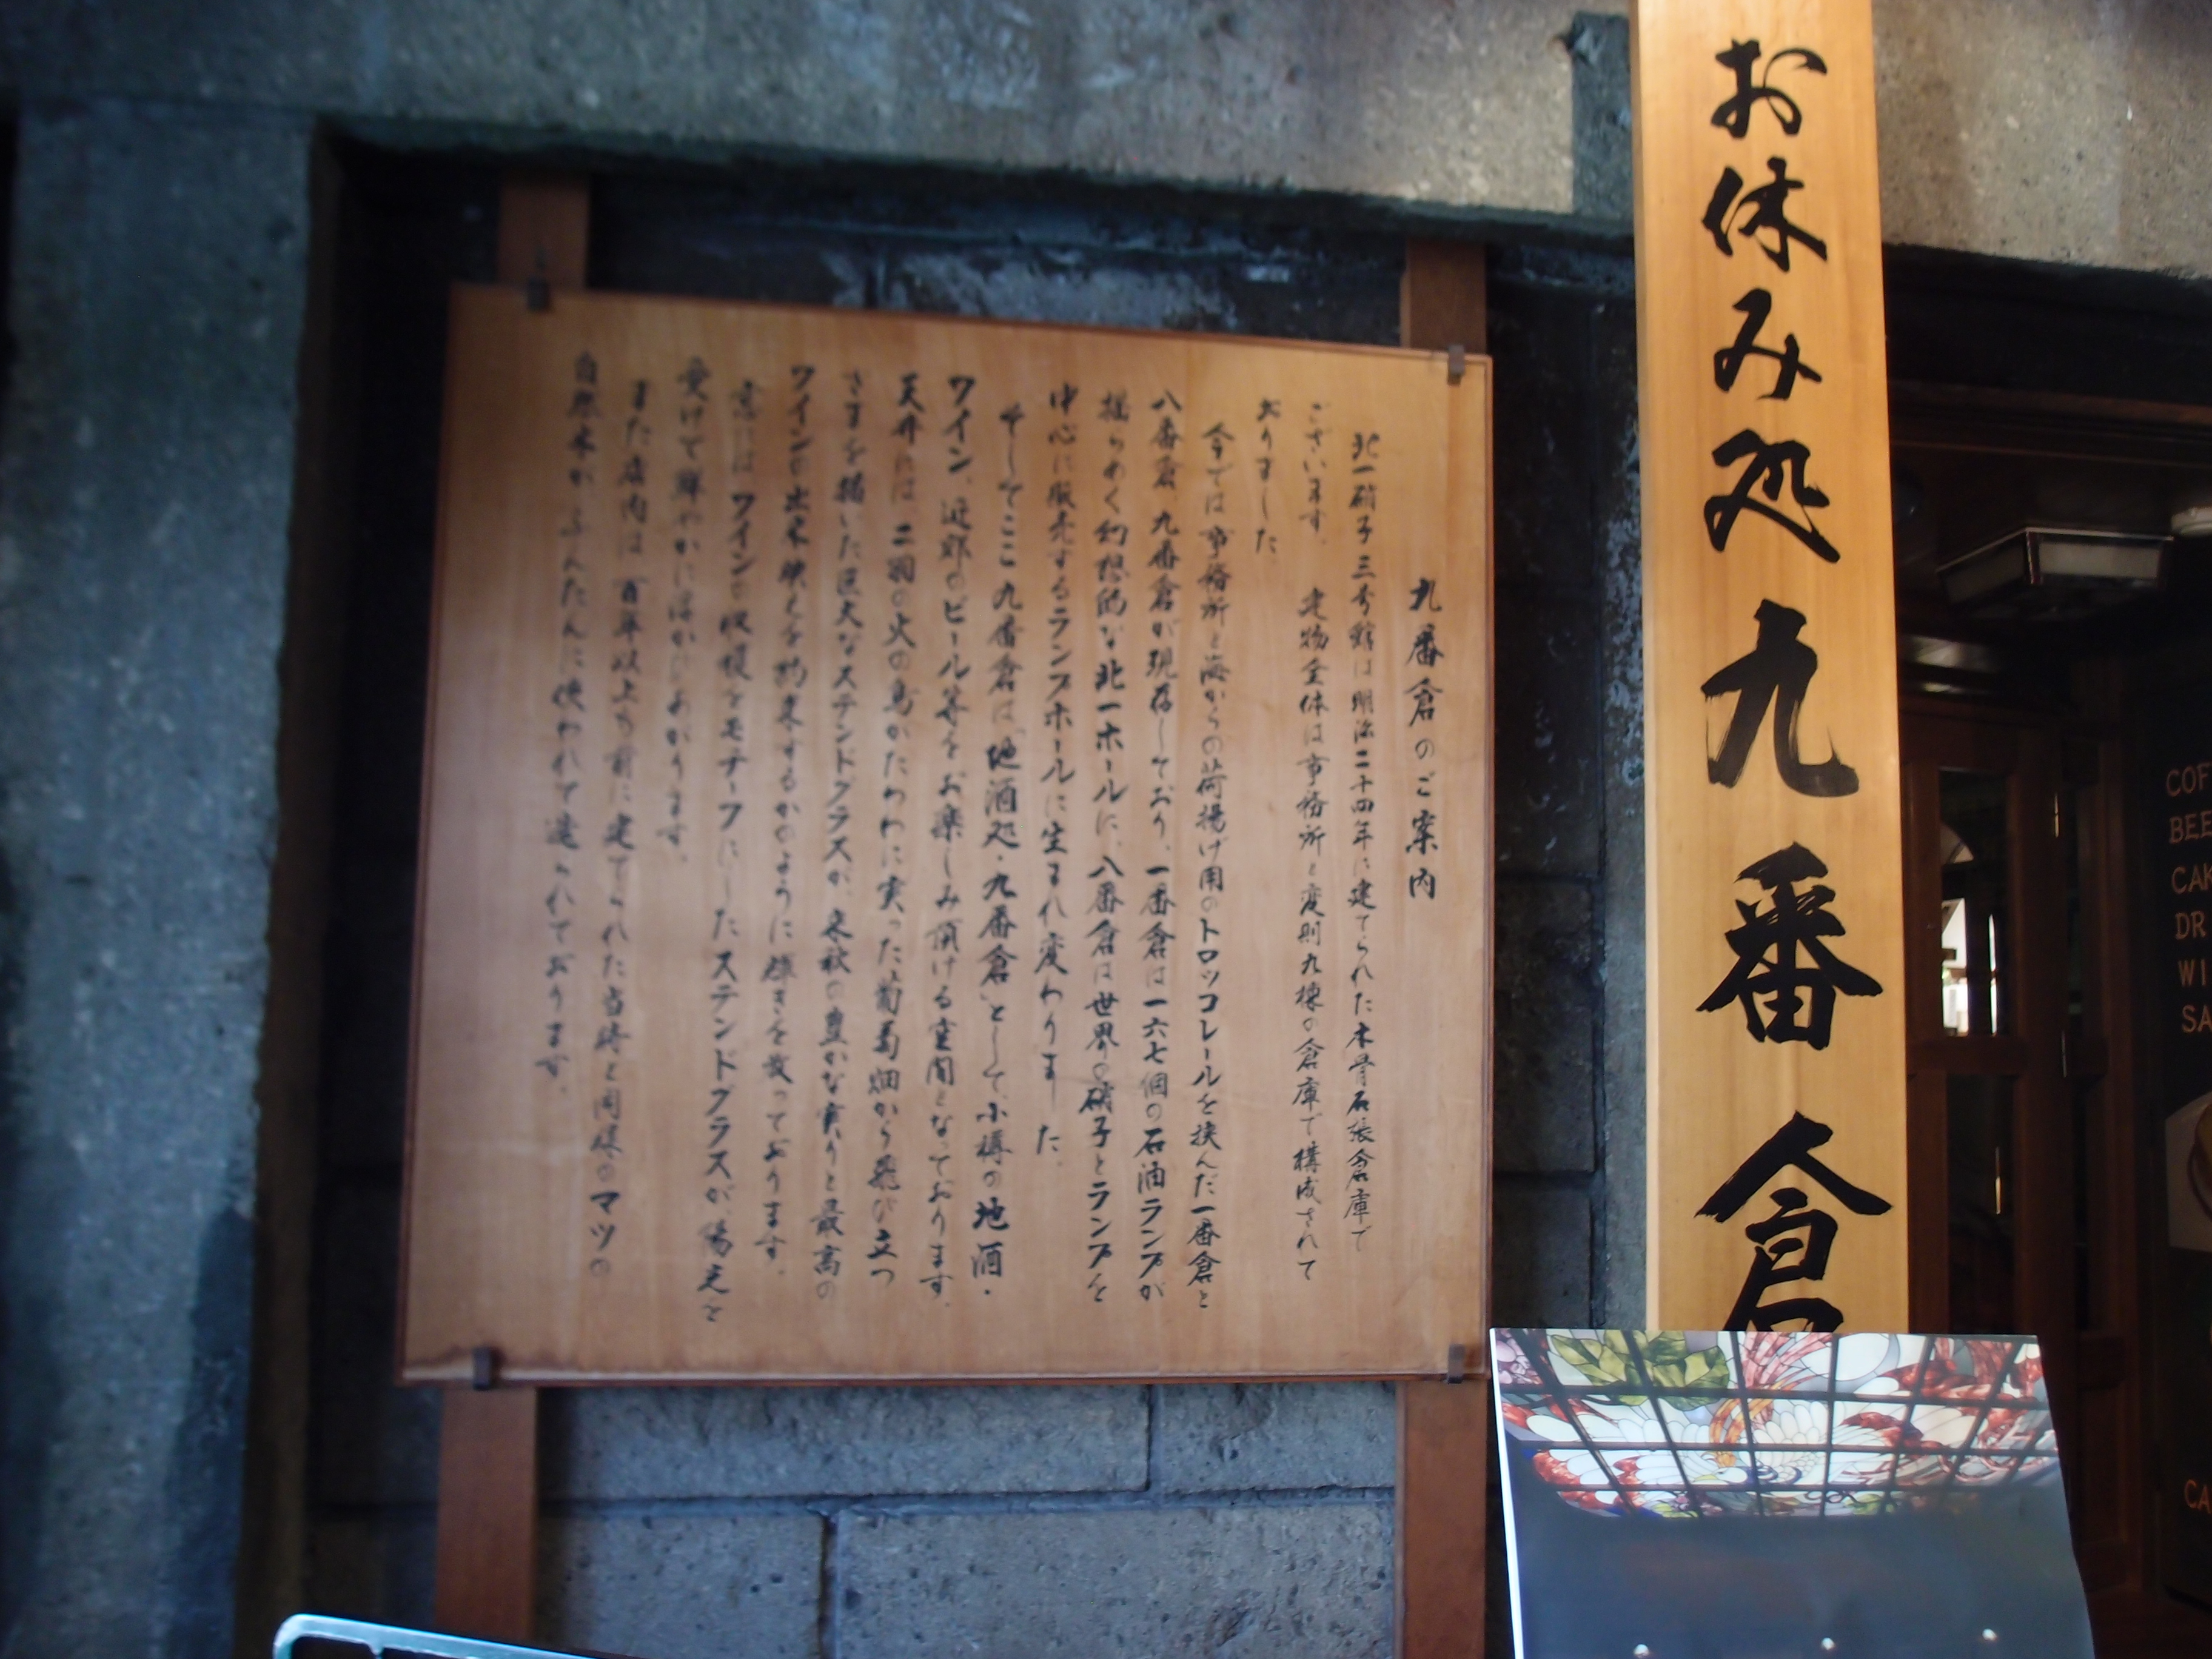 お休み処九番倉
九番倉のご案内
北一硝子三号館は明治二十四年に建てられた木骨石張倉庫で
ございます。 建物全体は事務所と変則九棟の倉庫で構成されて
おりました
今では事務所と海からの荷揚げ用のトロッコレールを挟んだ一番倉と
八番倉、九番倉が現存しており、一番倉は一六七個の石油ランプが
揺らめく幻想的な北一ホールに、八番倉は世界の硝子とランプを
中心に販売するランプホールに生まれ変わりました.
そしてここ九番倉は「地酒処・九番倉」として、小樽の地酒・
ワイン、近郊のビール等をお楽しみ頂ける空間となっております.
天井には二羽の火の鳥がたわわに実った葡萄畑から飛び立つ
さまを描いた巨大なステンドグラスが、来秋の豊かな実りと最高の
ワインの出来映えを約束するかのように輝きを放っております.
窓にはワインの収穫をモチーフにしたステンドグラスが、陽光を
受けて鮮やかに浮かびあがります.
また店内は百年以上も前に建てられた当時と同様のマツの
自然木がふんだんに使われて建られております.
COF
BEE
CAK
DR
WI
SA
CA